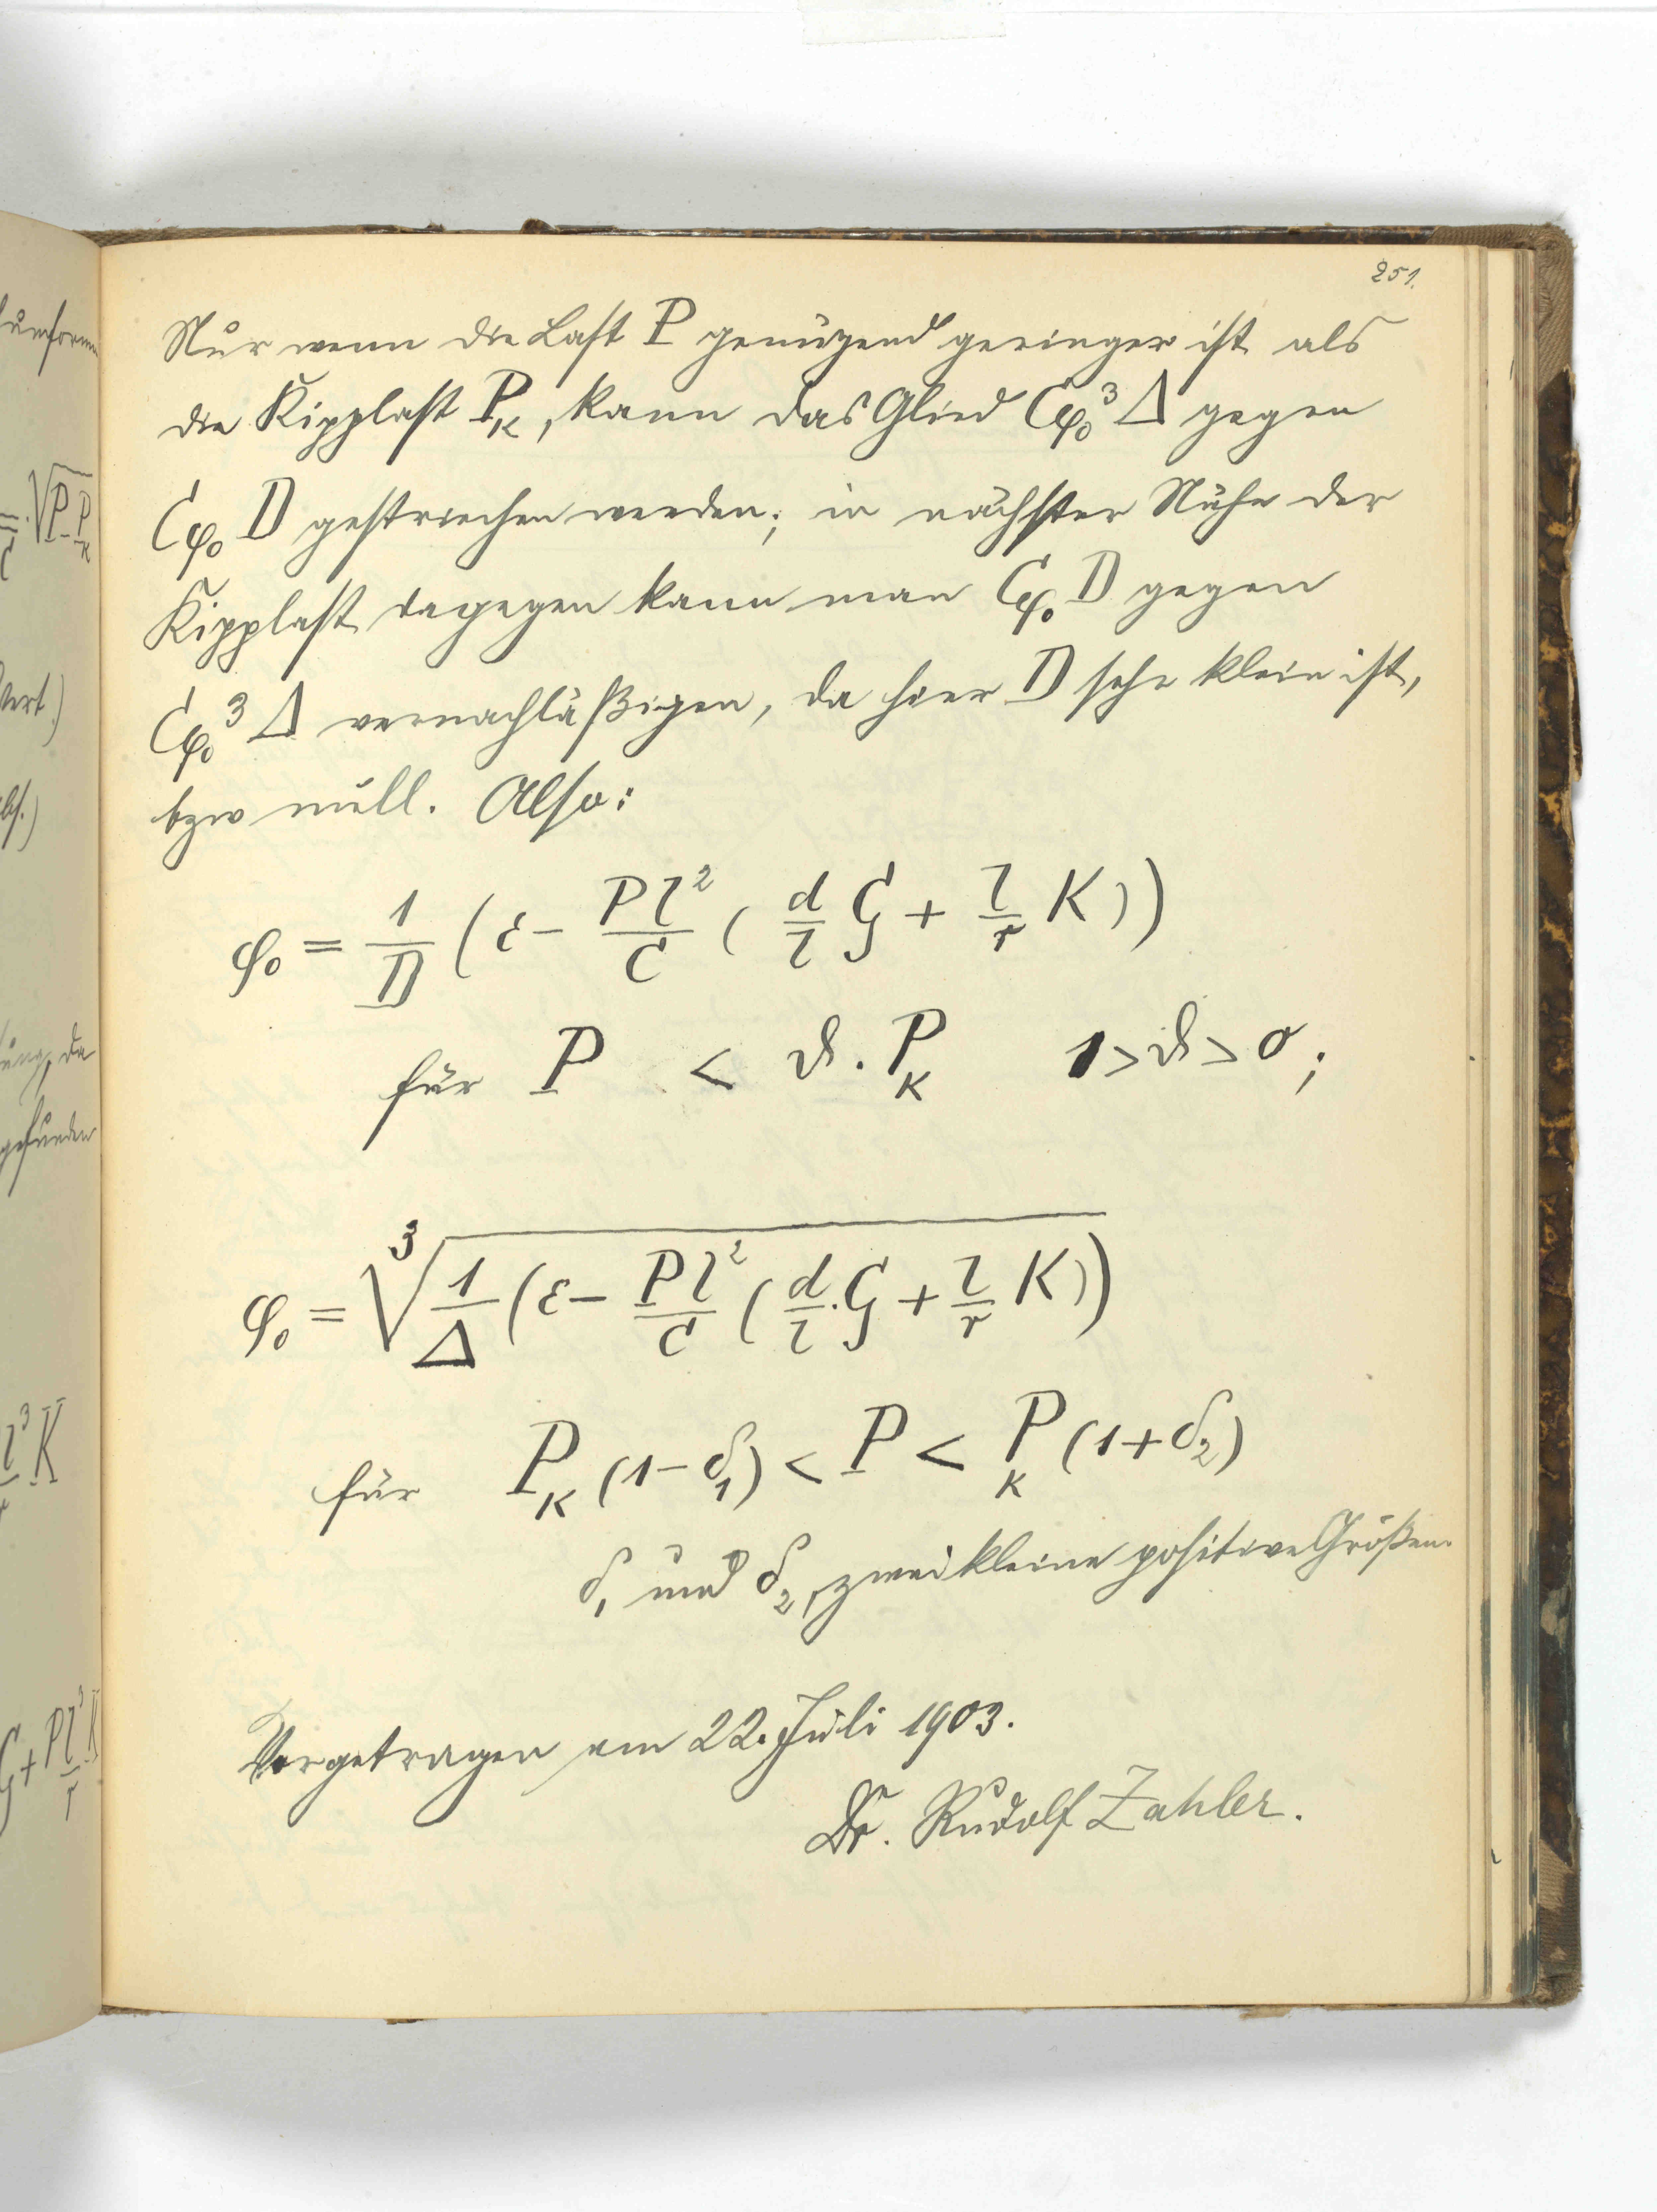 251.
Nur wenn die Last P genügend geringer ist als
die Kipplast P_K, kann das Glied Cφ₀³Δ gegen
Cφ₀D gestrichen werden; in nächster Nähe der
Kipplast dagegen kann man Cφ₀D gegen
Cφ₀³Δ vernachläßigen, da hier D sehr klein ist,
bzw null. Also:
φ₀ = 1/D (ε − Pl²/C (d/l G + l/r K))
für P < ϑ . P_K 1 > ϑ > 0;
φ₀ = ∛(1/Δ (ε − Pl²/C (d/l . G + l/r K))
für P_K (1−δ₁) < P < P_K (1+δ₂)
δ₁ und δ₂, zwei kleine positive Größen.
Vorgetragen am 22. Juli 1903.
Dr. Rudolf Zahler.